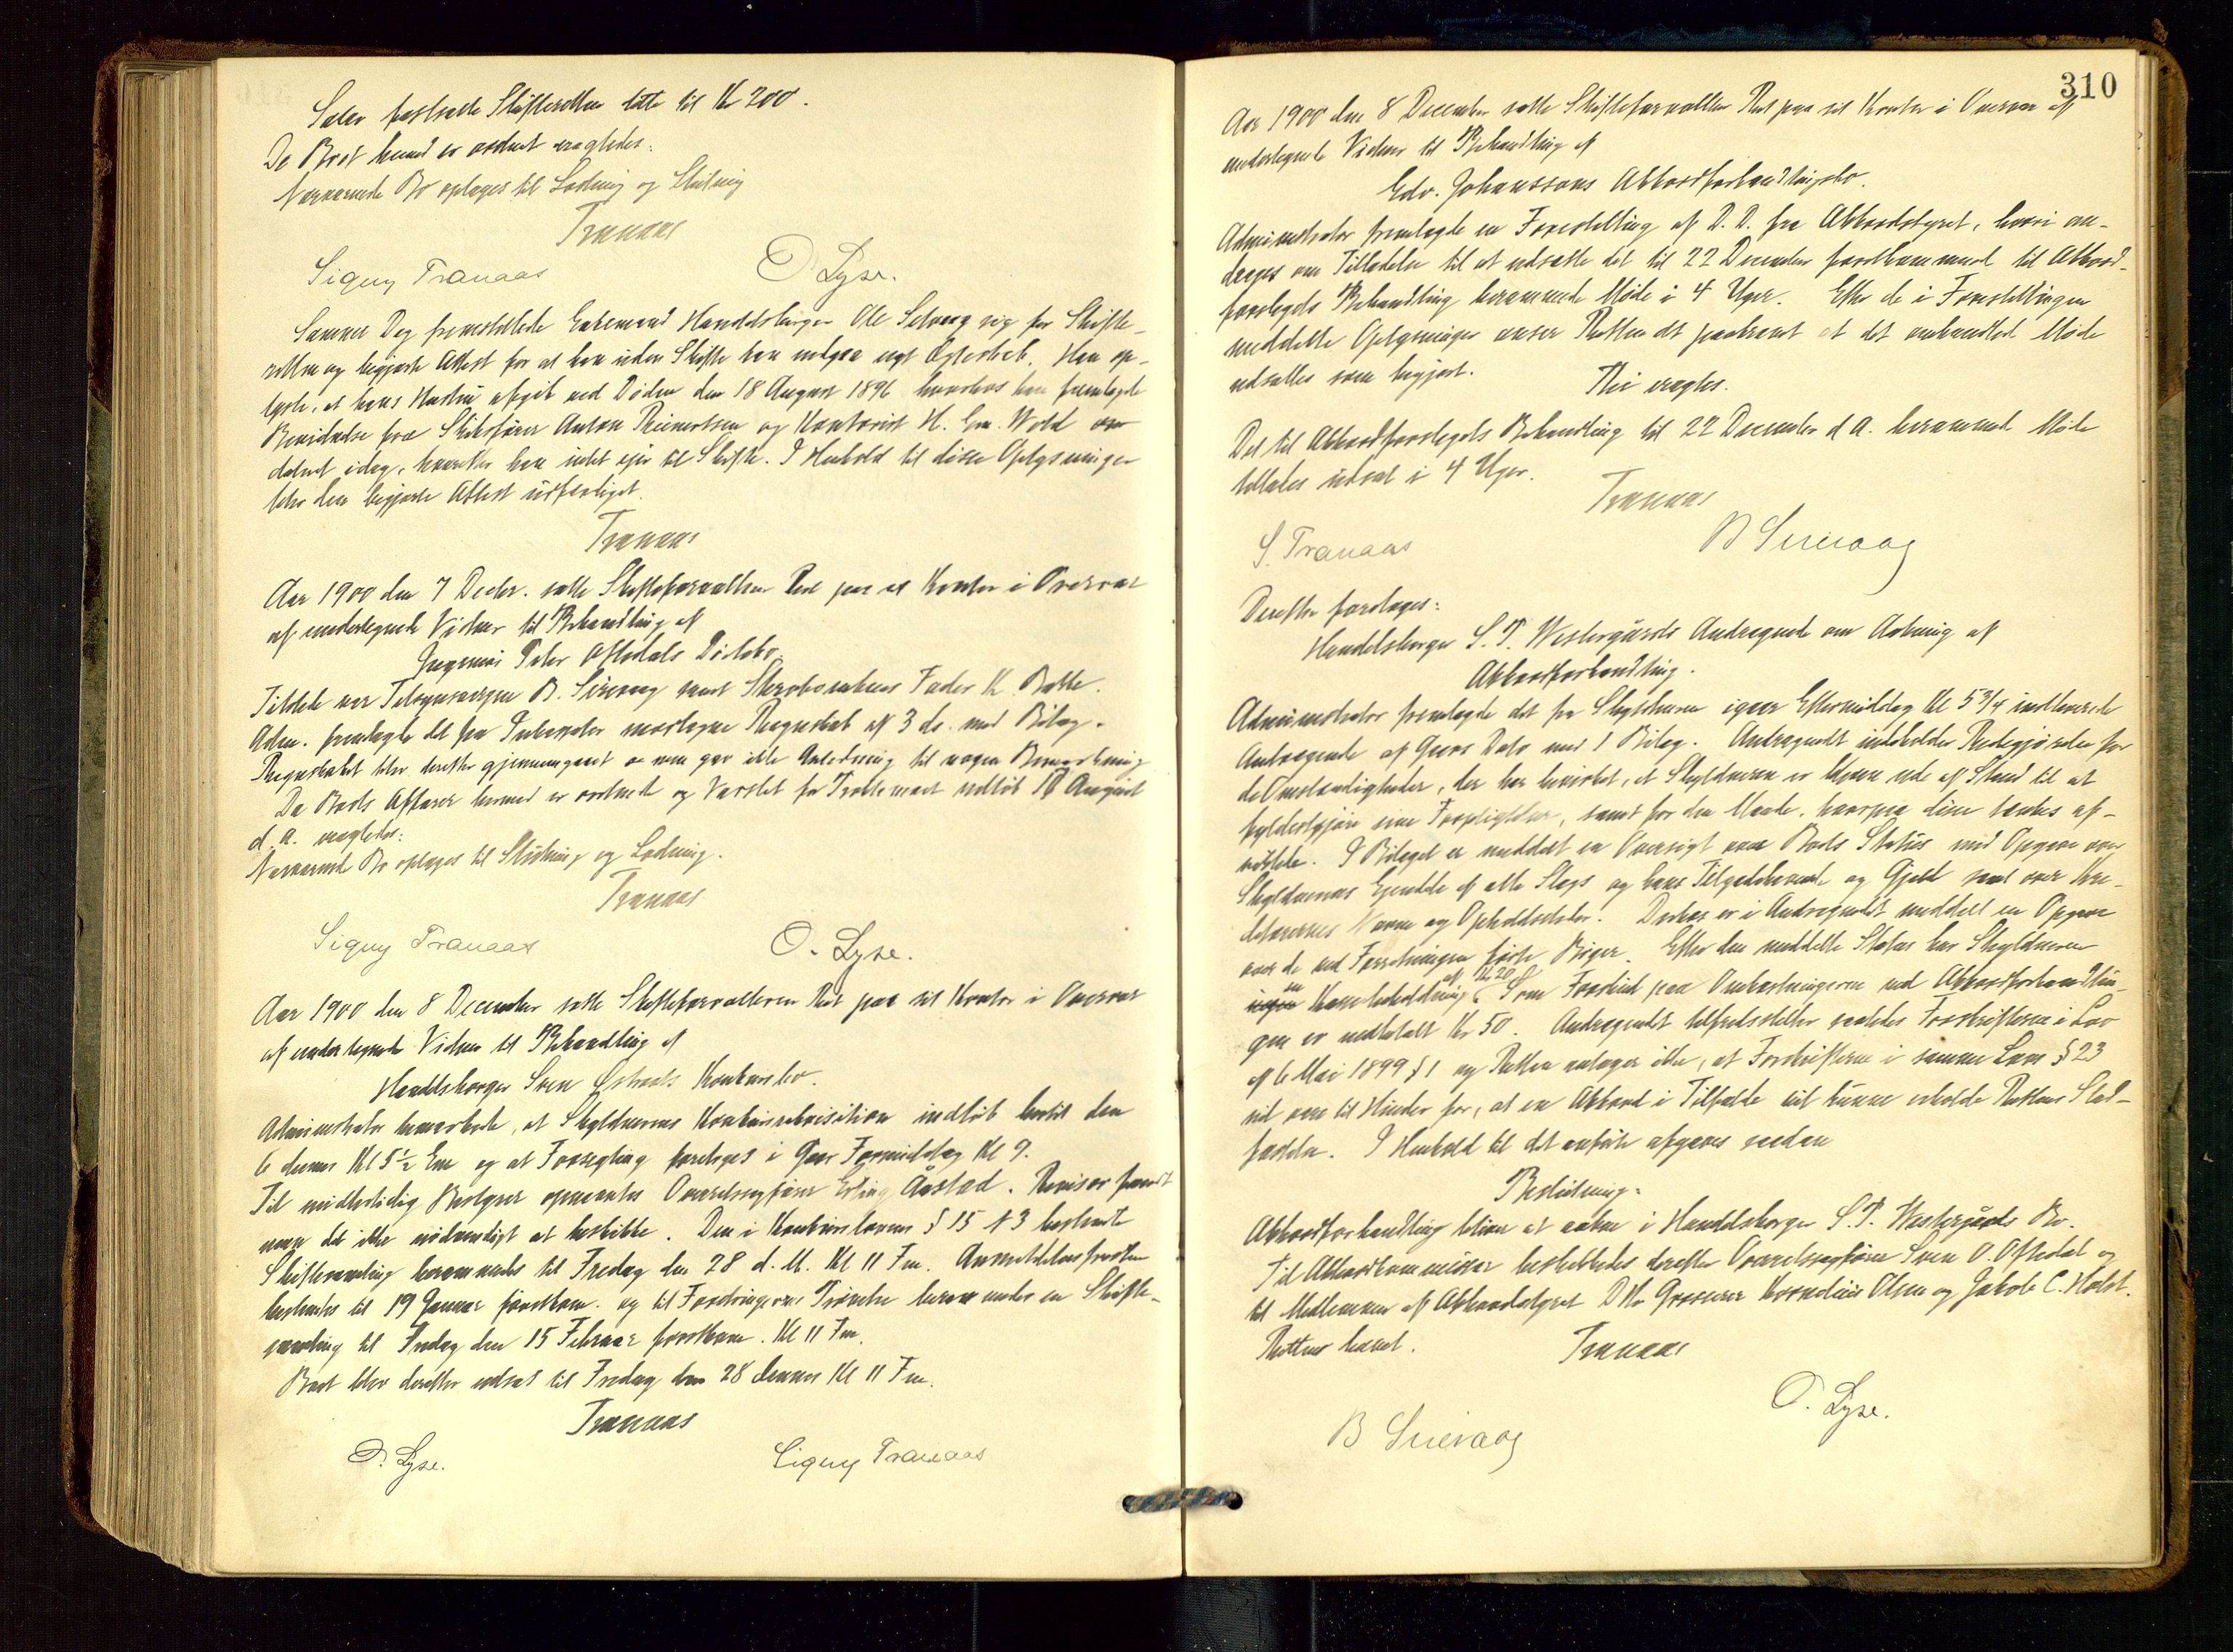 Salær fastsatte Skifteretten dette til Kr 200.
Da Boet hermed er ordnet eragtedes:
Nærværende Bo optages til Lodning og Slutning
Tranaas
Signy Tranaas O. Lyse.
Samme Dag fremstillede Enkemand Handelsborger Ole Selvaag sig for Skifte-
retten og begjærte Attest for at han uden Skifte kan indgaa nyt Ægteskab. Han op-
lyste, at hans Hustru afgik ved Døden den 18 August 1896 hvorhos han fremlagde
Bevidnelse fra Skibsfører Anton Reinertsen og Kontorist H. Chr. Wold
dateret idag, hvorefter han intet ejer til Skifte. I Henhold til disse Oplysninger
blev den begjærte Attest udfærdiget.
Tranaas
Aar 1900 den 7 Decbr. satte Skifteforvalteren Ret paa sit Kontor i Overvær
af undertegnede Vidner til Behandling af
Ingeniør Peter Aftedals Dødsbo.
Tilstede var Tilsynsværgen B. Sirevaag samt Fader K. Bakke.
Adm. fremlagde det fra Inkassator modtagne Regnskab af 3 ds. med Bilag.
Regnskabet blev derefter gjennemgaaet og gav ikke Anledning til nogen Bemærkning
Da Boets Affærer hermed er ordnede og Varslet for Proklamaet udløb 18 August
d. A. eragtedes:
Nærværende Bo optages til Slutning og Lodning.
Tranaas
Signy Tranaas O. Lyse.
Aar 1900 den 8 December satte Skifteforvalteren Ret paa sit Kontor i Overvær
af undertegnede Vidner til Behandling af
Handelsborger Sven Østraats Konkursbo.
Administrator bemærkede, at Skyldnerens Konkursrekvisition indløb hertil den
6 dennes Kl 5½ Em og at Forsegling foretoges i Gaar Formiddag Kl 9.
Til midlertidig Bestyrer opnævntes Overretssagfører Erling Aastad. Revisor fandt
man det ikke nødvendigt at beskikke. Den i Konkurslovens § 15 N 3 bestemte
Skiftesamling berammedes til Fredag den 28 d. M. Kl 11 Fm. Anmeldelsesfristen
bestemtes til 19 Januar førstkom. og til Fordringernes Prøvelse berammedes en Skifte-
samling til Fredag den 15 Februar førstkom. Kl 11 Fm.
Boet blev derefter udsat til Fredag den 28 dennes Kl 11 Fm.
Tranaas
O. Lyse. Signy Tranaas
310
Aar 1900 den 8 December satte Skifteforvalteren Ret paa sit Kontor i Overvær af
undertegnede Vidner til Behandling af
Edv. Johanssons Akkordforhandlingsbo.
Administrator fremlagde en Forestilling af D. D. fra Akkordstyret, hvori an-
drages om Tilladelse til at udsætte det til 22 December førstkommend til Akkord-
forslagets Behandling berammede Møde i 4 Uger. Efter de i Forestillingen
meddelte Oplysninger anser Retten det paakrævet at det omhandlede Møde
udsættes som begjært.
Thi eragtes.
Det til Akkordforslagets Behandling til 22 December d A. berammed Møde
tillades udsat i 4 Uger.
Tranaas
S. Tranaas B Sirevaag
Derefter foretoges:
Handelsborger S. T. Westergårds Andragende om Aabning af
Akkordforhandling.
Administrator fremlagde det fra Skyldneren igaar Eftermiddag Kl 5¾ indleverede
Andragende af Gaars Dato med 1 Bilag. Andragendet indeholder Redegjørelse for
de Omstændigheder, der har bevirket, at Skyldneren er kommen ude af Stand til at
fyldestgjøre sine Forpligtelser, samt for den Maade, hvorpaa disse tænkes af-
viklede. I Bilaget er meddelt en Oversigt over Boets Status med Opgave over
Skyldnerens Eiendele af alle Slags og hans Tilgodehavende og Gjeld samt over Kre-
ditorernes Navne og Opholdssteder. Derhos er i Andragendet meddelt en Opgave
over de ved Forretningen førte Bøger. Efter den meddelte Status har Skyldneren
ingen en Kassebeholdning af Kr 20. Som Forskud paa Omkostningerne ved Akkordforhandlin-
gen er indbetalt Kr 50. Andragendet tilfredsstiller saaledes Forskrifterne i Lov
af 6 Mai 1899 § 1 og Retten antager ikke, at Forskrifterne i samme Lovs § 23
vil være til Hinder for, at en Akkord i Tilfælde vil kunne erholde Rettens Stad-
fæstelse. I Henhold til det anførte afgaves saadan
Beslutning:
Akkordforhandling bliver at aabne i Handelsborger S. T. Westergaards Bo.
Til Akkordkommissær beskikkedes derefter Overretssagfører Sven O. Oftedal og
til Medlemmer af Akkordstyret D'Hr Grosserer Kornelius Olsen og Jakob C. Holst.
Retten hævet.
Tranaas
B Sirevaag O. Lyse.